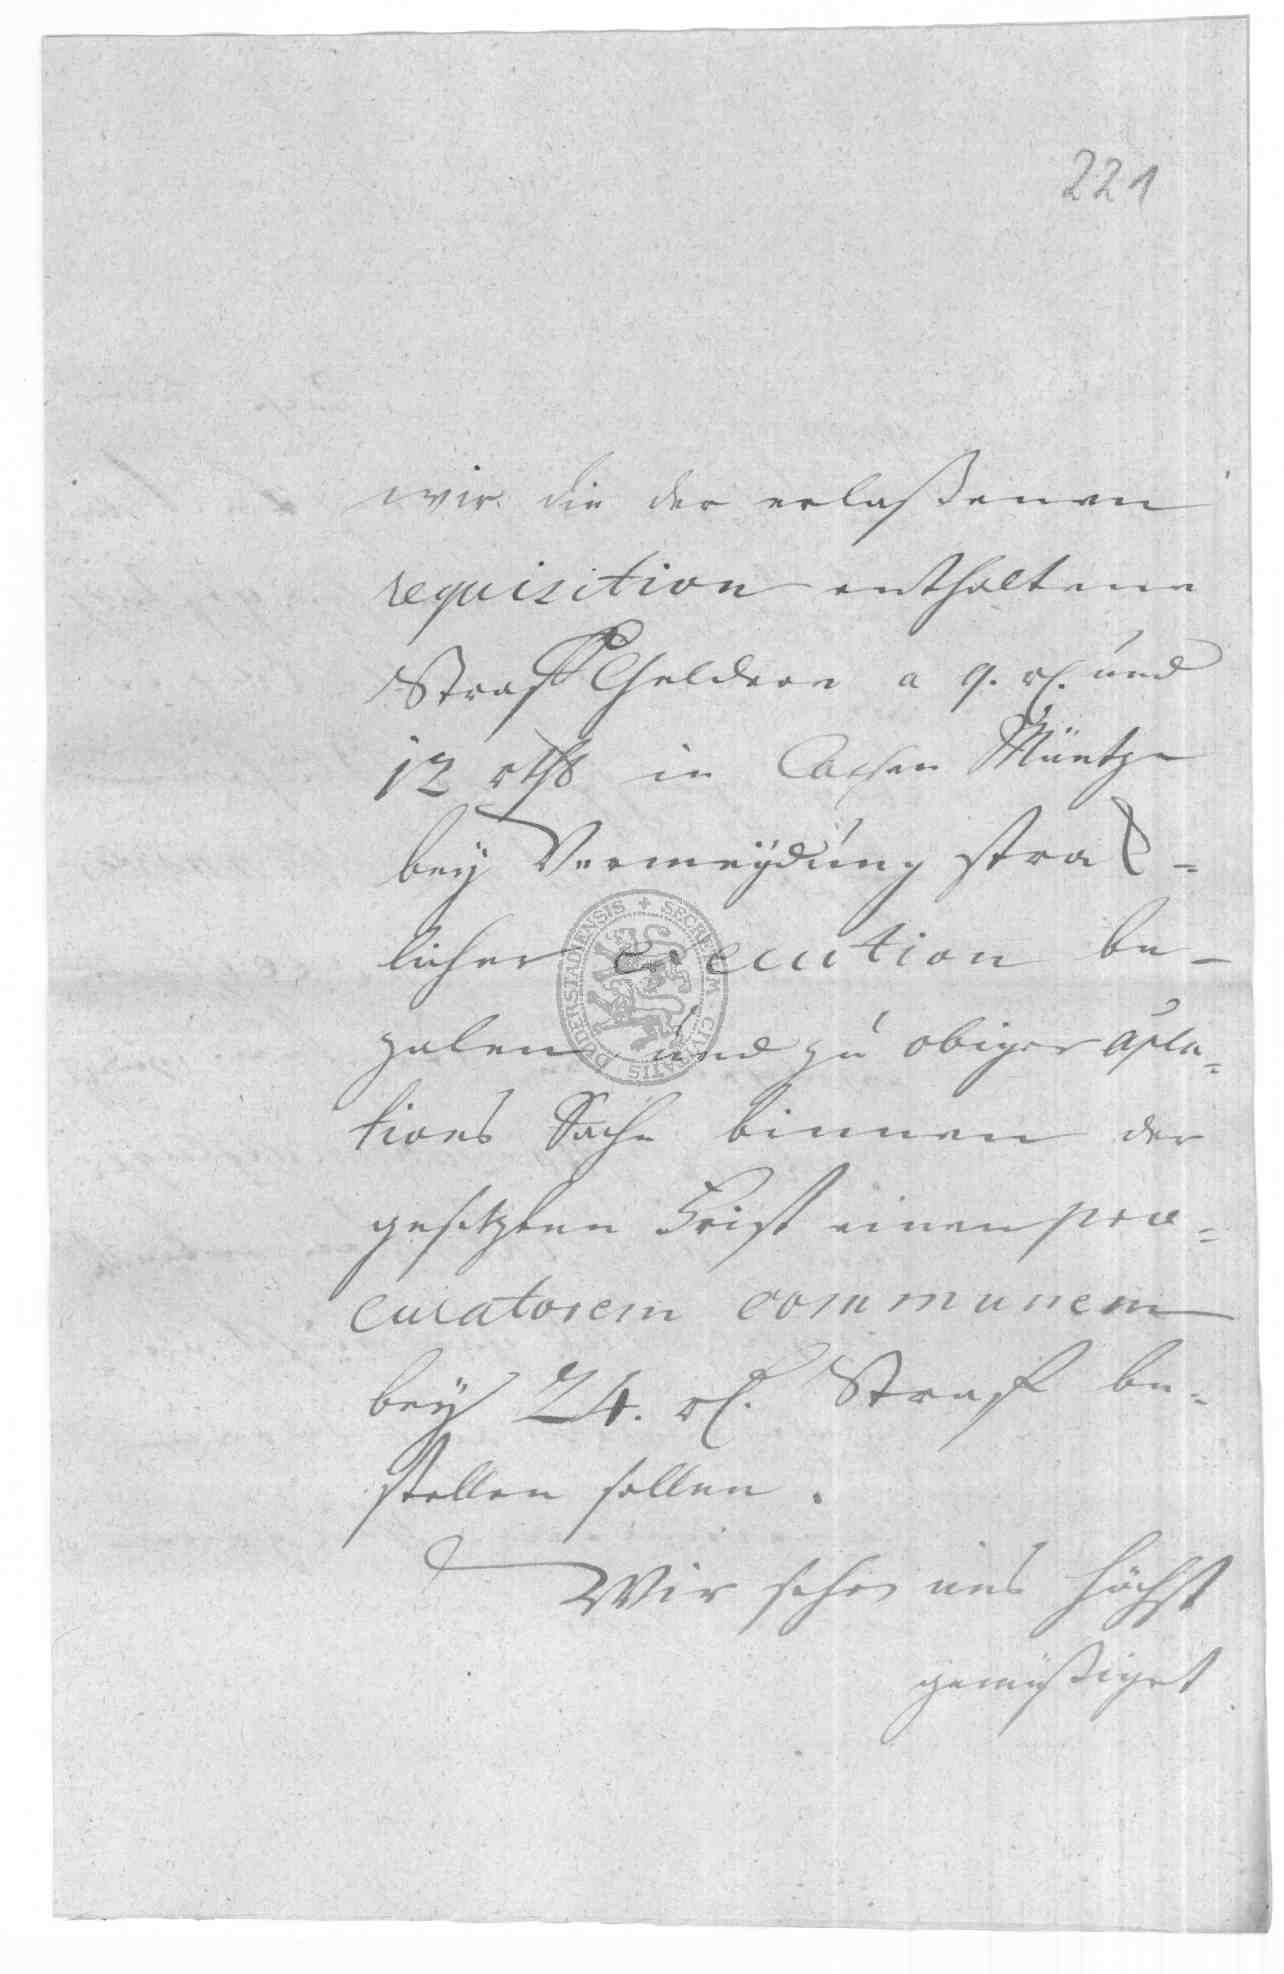 221
wir die der erlaßenen
requisition enthaltene
Straf Geldere a 9. rl. und
12 rthl in Cassen Müntze
bey Vermeydung straf=
licher execution be-
zalen und zu obiger apla=
tions Sache binnen der
gesetzten Frist einen pro=
curatorem communem
bey 24. rl. Straf be=
stellen sollen.
Wir sehen uns höchst
gemüßiget
SECRETUM CIVITATIS DUDERSTADIENSIS